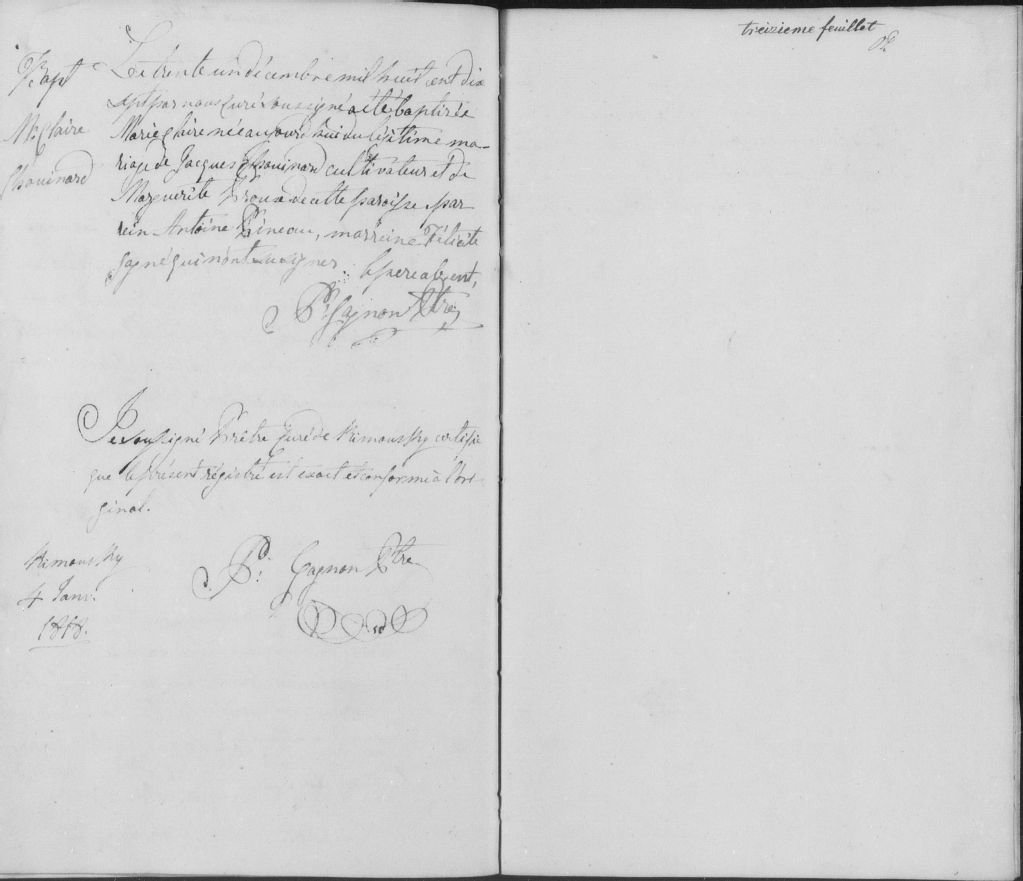 Bapt
M. Claire
Chouinard
Le trente un décembre mil huit cent dix
sept par nous curé soussigné a été baptisée
Marie Claire née aujourd'hui du légitime ma-
riage de Jacques Chouinard cultivateur et de
Marguerite Proux de cette paroisse, par
rein Antoine Pineau, marreine Félicité
Gagné qui n'ont su signer le pere absent,
Pr. Gagnon Ptre
Je soussigné Prêtre Curé de Rimousky certifie
que le présent régistre est exact et conforme à l'ori-
ginal.
Rimousky
4 Janv.
1818.
P. Gagnon Ptre
treizieme feuillet